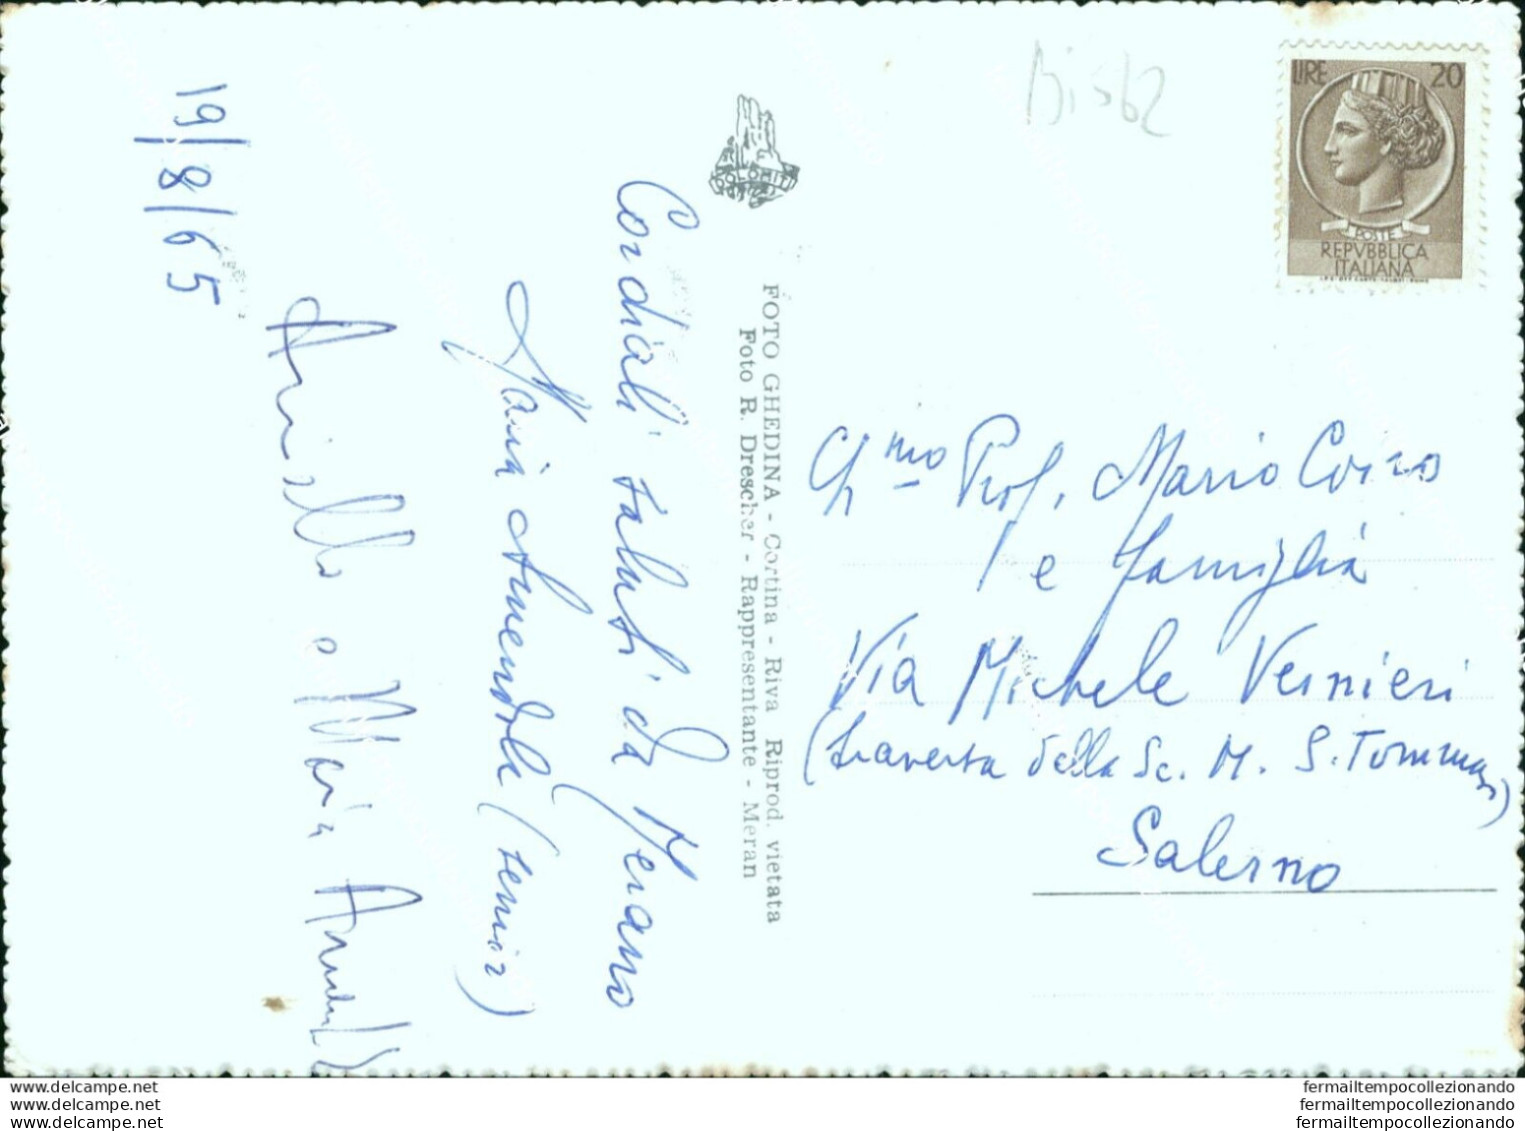 19/8/65
Cordiali saluti da Merano
Maria Amendola (senior)
Aniello e Maria
DOLOMITI
FOTO GHEDINA - Cortina - Riva Riprod. vietata
Foto R. Drescher - Rappresentante - Meran
Bi562
LIRE 20
POSTE
REPVBBLICA
ITALIANA
Ch.mo Prof. Mario
e famiglia
Via Michele Vernieri
(traversa della Sc. M. S. Tommaso)
Salerno
www.delcampe.net
www.delcampe.net
www.delcampe.net
fermailtempocollezionando
fermailtempocollezionando
fermailtempocollezionando